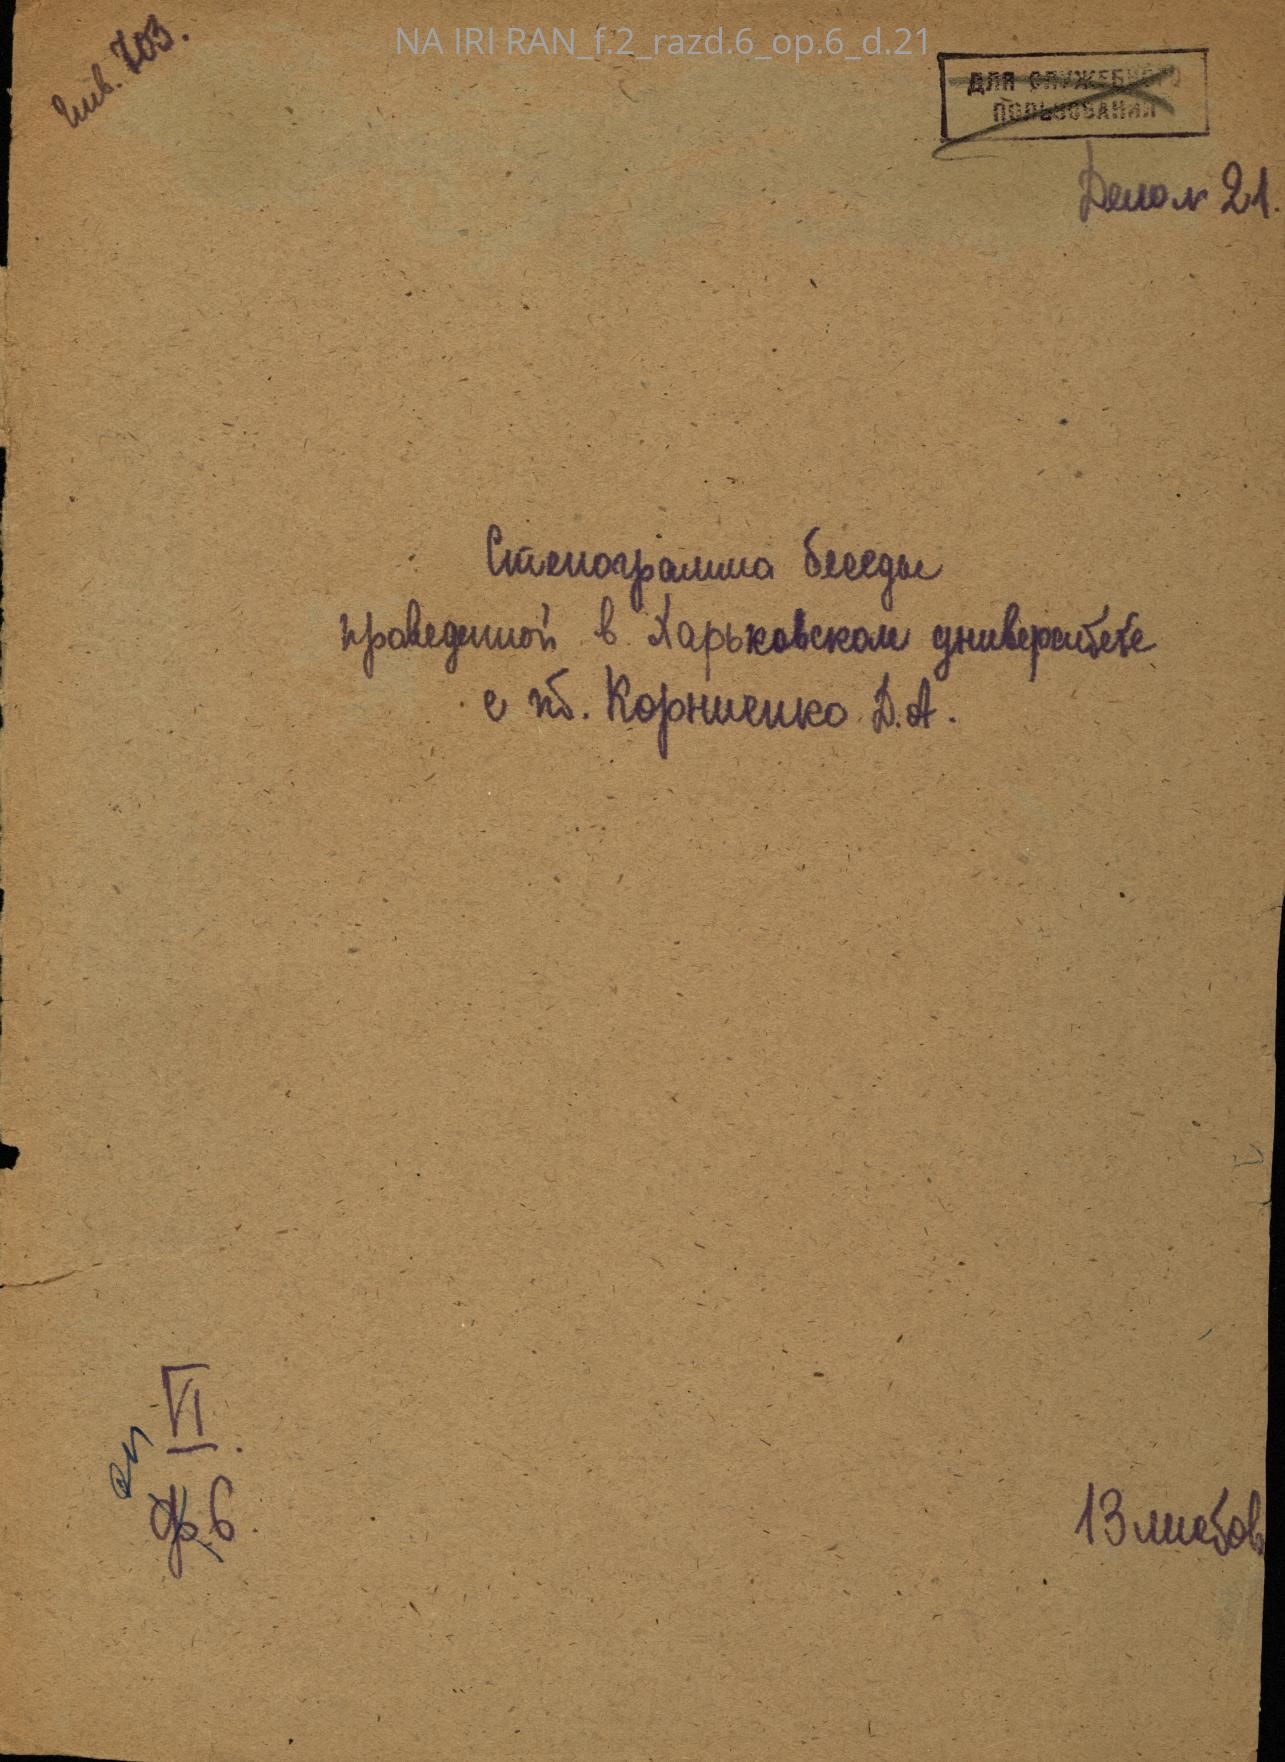 NA IRI RAN_f.2_razd.6_op.6_d.21
Инв. 703.
ДЛЯ СЛУЖЕБНОГО
ПОЛЬЗОВАНИЯ
Дело № 21.
Стенограмма беседы
проведенной в Харьковском университете
с тт. Корниенко Д.А.
VI
оп
ф 6.
13 листов